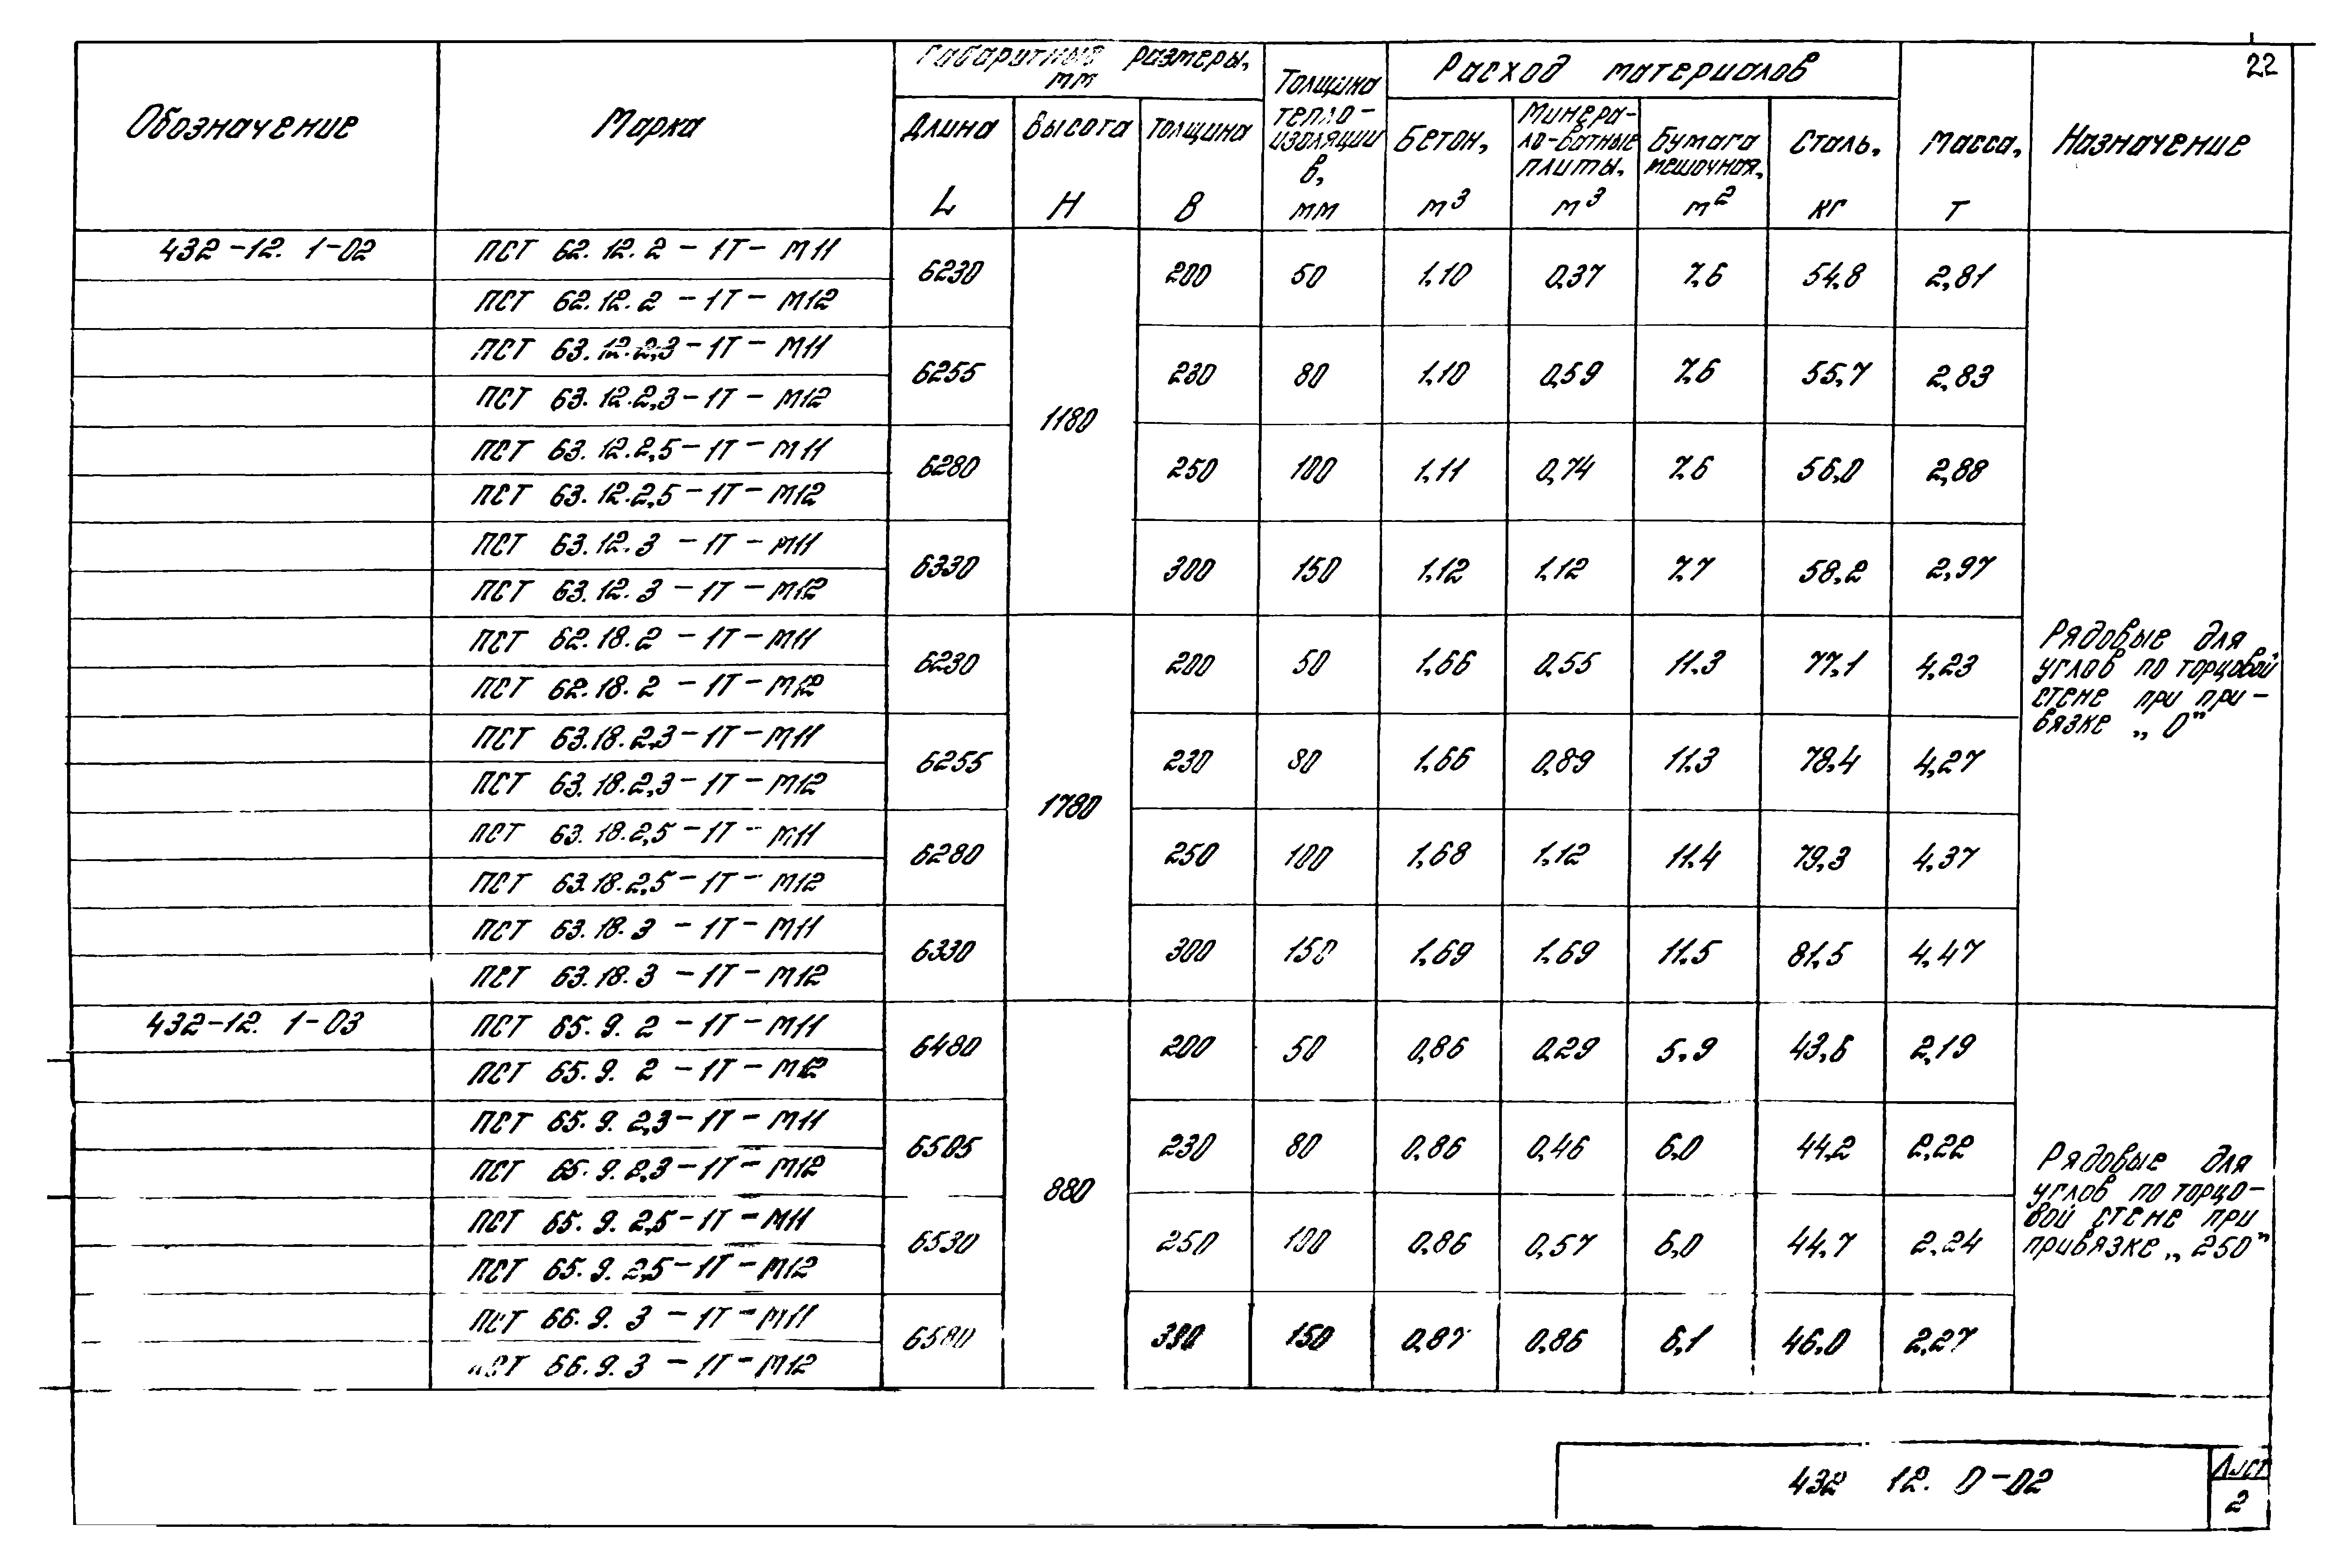 22
Обозначение Марка Габаритные размеры, мм Толщина тепло-изоляции в, мм Расход материалов Масса, т Назначение
Длина L Высота H Толщина B Бетон, м³ Минера-ло-ватные плиты, м³ Бумага мешочная, м² Сталь, кг
432-12. 1-02 ПСТ 62.12.2 - 1Т - М11 6230 1180 200 50 1,10 0,37 7,6 54,8 2,81
ПСТ 62.12.2 - 1Т - М12
ПСТ 63.12.2,3 - 1Т - М11 6255 230 80 1,10 0,59 7,6 55,7 2,83
ПСТ 63.12.2,3 - 1Т - М12
ПСТ 63.12.2,5 - 1Т - М11 6280 250 100 1,11 0,74 7,6 56,0 2,88
ПСТ 63.12.2,5 - 1Т - М12
ПСТ 63.12.3 - 1Т - М11 6330 300 150 1,12 1,12 7,7 58,2 2,97
ПСТ 63.12.3 - 1Т - М12
ПСТ 62.18.2 - 1Т - М11 6230 1780 200 50 1,66 0,55 11.3 77,1 4,23
ПСТ 62.18.2 - 1Т - М12
ПСТ 63.18.2,3 - 1Т - М11 6255 230 80 1,66 0,89 11.3 78,4 4,27
ПСТ 63.18.2,3 - 1Т - М12
ПСТ 63.18.2,5 - 1Т - М11 6280 250 100 1,68 1,12 11.4 79,3 4,37
ПСТ 63.18.2,5 - 1Т - М12
ПСТ 63.18.3 - 1Т - М11 6330 300 150 1,69 1,69 11,5 81,5 4,47
ПСТ 63.18.3 - 1Т - М12
Рядовые для
углов по торцовой
стене при при-
вязке „ 0"
432-12. 1-03 ПСТ 65.9.2 - 1Т - М11 6480 880 200 50 0,86 0,29 5,9 43,6 2,19
ПСТ 65.9.2 - 1Т - М12
ПСТ 65.9.2,3 - 1Т - М11 6505 230 80 0,86 0,46 6,0 44,2 2,22
ПСТ 65.9.2,3 - 1Т - М12
ПСТ 65.9.2,5 - 1Т - М11 6530 250 100 0,86 0,57 6,0 44,7 2,24
ПСТ 65.9.2,5 - 1Т - М12
ПСТ 66.9.3 - 1Т - М11 6580 300 150 0,87 0,86 6,1 46,0 2,27
ПСТ 66.9.3 - 1Т - М12
Рядовые для
углов по торцо-
вой стене при
привязке „ 250"
432 12. 0-02 Лист
2